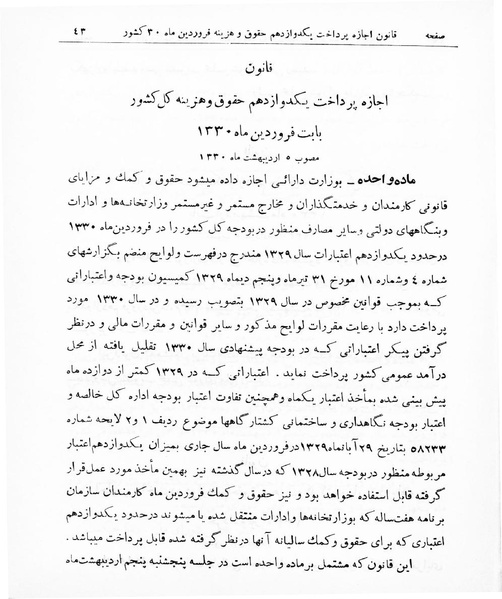 صفحه قانون اجازه پرداخت یکدوازدهم حقوق و هزینه فروردین ماه ۳۰ کشور ۴۳
قانون
اجازه پرداخت یکدوازدهم حقوق وهزینه کل کشور
بابت فروردین ماه ۱۳۳۰
مصوب ۵ اردیبهشت ماه ۱۳۳۰
ماده واحده – بوزارت دارائی اجازه داده میشود حقوق و کمك و مزایای
قانونی کارمندان و خدمتگذاران و مخارج مستمر و غیرمستمر وزارتخانه‌ها و ادارات
وبنگاههای دولتی وسایر مصارف منظور دربودجه کل کشور را در فروردین‌ماه ۱۳۳۰
درحدود یکدوازدهم اعتبارات سال ۱۳۲۹ مندرج درفهرست ولوایح منضم بگزارشهای
شماره ۴ وشماره ۱۱ مورخ ۳۱ تیرماه وپنجم دیماه ۱۳۲۹ کمیسیون بودجه واعتباراتی
که بموجب قوانین مخصوص در سال ۱۳۲۹ بتصویب رسیده و در سال ۱۳۳۰ مورد
پرداخت دارد با رعایت مقررات لوایح مذکور و سایر قوانین و مقررات مالی و درنظر
گرفتن پیکر اعتباراتی که در بودجه پیشنهادی سال ۱۳۳۰ تقلیل یافته از محل
درآمد عمومی کشور پرداخت نماید . اعتباراتی که در ۱۳۲۹ کمتر از دوازده ماه
پیش بینی شده بمأخذ اعتبار یکماه وهمچنین تفاوت اعتبار بودجه اداره کل خالصه و
اعتبار بودجه نگاهداری و ساختمانی کشتارگاهها موضوع ردیف ۱و۲ لایحه شماره
۵۸۲۳۳ بتاریخ ۲۹آبانماه۱۳۲۹درفروردین ماه سال جاری بمیزان یکدوازدهم‌اعتبار
مربوطه منظور دربودجه سال۱۳۲۸ که درسال گذشته نیز بهمین مأخذ مورد عمل‌قرار
گرفته قابل استفاده خواهد بود و نیز حقوق و کمك فروردین ماه کارمندان سازمان
برنامه هفت‌ساله که بوزارتخانه‌ها وادارات منتقل شده یا میشوند درحدود یکدوازدهم
اعتباری که برای حقوق وکمك سالیانه آنها درنظر گرفته شده قابل پرداخت میباشد .
این قانون که مشتمل برماده واحده است در جلسه پنجشنبه پنجم اردیبهشت‌ماه